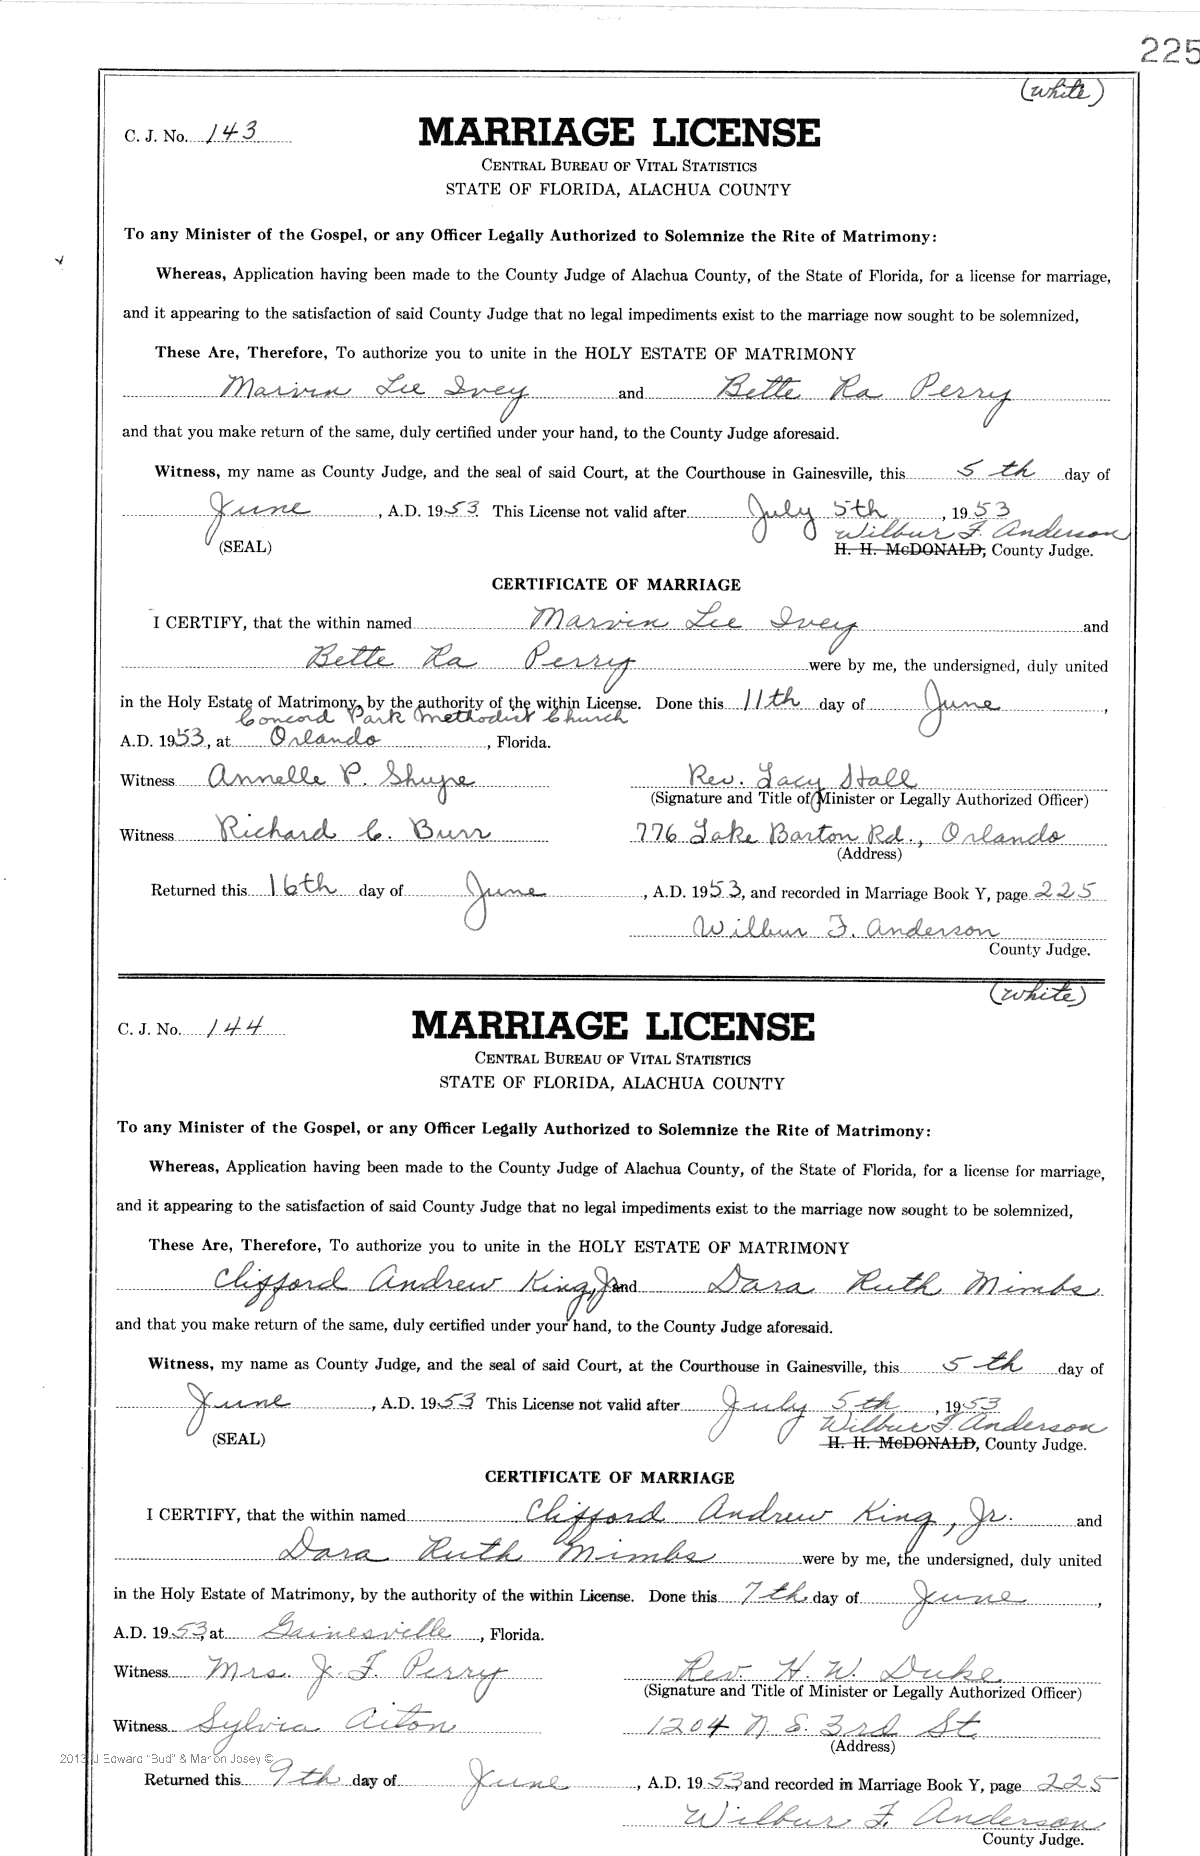 225
(white)
C. J. No. 143
MARRIAGE LICENSE
CENTRAL BUREAU OF VITAL STATISTICS
STATE OF FLORIDA, ALACHUA COUNTY
To any Minister of the Gospel, or any Officer Legally Authorized to Solemnize the Rite of Matrimony:
Whereas, Application having been made to the County Judge of Alachua County, of the State of Florida, for a license for marriage,
and it appearing to the satisfaction of said County Judge that no legal impediments exist to the marriage now sought to be solemnized,
These Are, Therefore, To authorize you to unite in the HOLY ESTATE OF MATRIMONY
Marvin Lee Ivey and Bette Ra Perry
and that you make return of the same, duly certified under your hand, to the County Judge aforesaid.
Witness, my name as County Judge, and the seal of said Court, at the Courthouse in Gainesville, this 5th day of
June, A.D. 1953. This License not valid after July 5th, 1953
Wilbur F. Anderson
(SEAL) H. H. McDONALD, County Judge.
CERTIFICATE OF MARRIAGE
I CERTIFY, that the within named Marvin Lee Ivey and
Bette Ra Perry were by me, the undersigned, duly united
in the Holy Estate of Matrimony, by the authority of the within License. Done this 11th day of June,
Concord Park Methodist Church
A.D. 1953, at Orlando, Florida.
Witness Annelle P. Shupe Rev. Lacy Hall
(Signature and Title of Minister or Legally Authorized Officer)
Witness Richard C. Burr 776 Lake Barton Rd., Orlando
(Address)
Returned this 16th day of June, A.D. 1953, and recorded in Marriage Book Y, page 225
Wilbur F. Anderson
County Judge.
(white)
C. J. No. 144
MARRIAGE LICENSE
CENTRAL BUREAU OF VITAL STATISTICS
STATE OF FLORIDA, ALACHUA COUNTY
To any Minister of the Gospel, or any Officer Legally Authorized to Solemnize the Rite of Matrimony:
Whereas, Application having been made to the County Judge of Alachua County, of the State of Florida, for a license for marriage,
and it appearing to the satisfaction of said County Judge that no legal impediments exist to the marriage now sought to be solemnized,
These Are, Therefore, To authorize you to unite in the HOLY ESTATE OF MATRIMONY
Clifford Andrew King, Jr. and Dara Ruth Mimbs
and that you make return of the same, duly certified under your hand, to the County Judge aforesaid.
Witness, my name as County Judge, and the seal of said Court, at the Courthouse in Gainesville, this 5th day of
June, A.D. 1953 This License not valid after July 5th, 1953
Wilbur F. Anderson
(SEAL) H. H. McDONALD, County Judge.
CERTIFICATE OF MARRIAGE
I CERTIFY, that the within named Clifford Andrew King, Jr. and
Dara Ruth Mimbs were by me, the undersigned, duly united
in the Holy Estate of Matrimony, by the authority of the within License. Done this 7th day of June,
A.D. 1953, at Gainesville, Florida.
Witness Mrs. J. F. Perry Rev. H. W. Duke
(Signature and Title of Minister or Legally Authorized Officer)
Witness Sylvia Aiton 1204 N E. 3rd St.
(Address)
2013 J Edward "Bud" & Marion Josey ©
Returned this 9th day of June, A.D. 1953, and recorded in Marriage Book Y, page 225
Wilbur F. Anderson
County Judge.